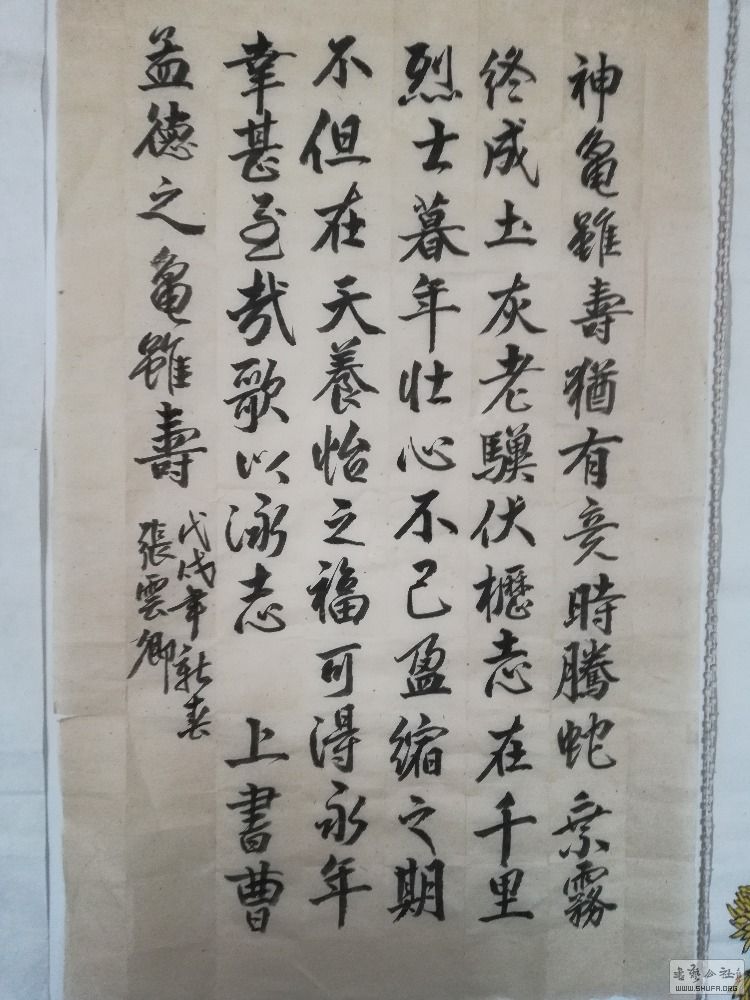 神龜雖壽猶有竟時騰蛇乗霧
終成土灰老驥伏櫪志在千里
烈士暮年壯心不已盈縮之期
不但在天養怡之福可得永年
幸甚至哉歌以泳志 上書曹
孟德之龜雖壽
戊戌年新春
張雲卿
WWW.SHUFA.ORG